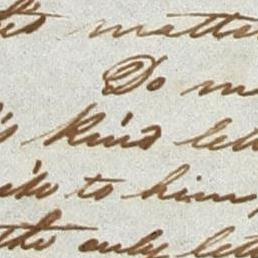 matte
Do m
's kind lett
to him,
the only lett